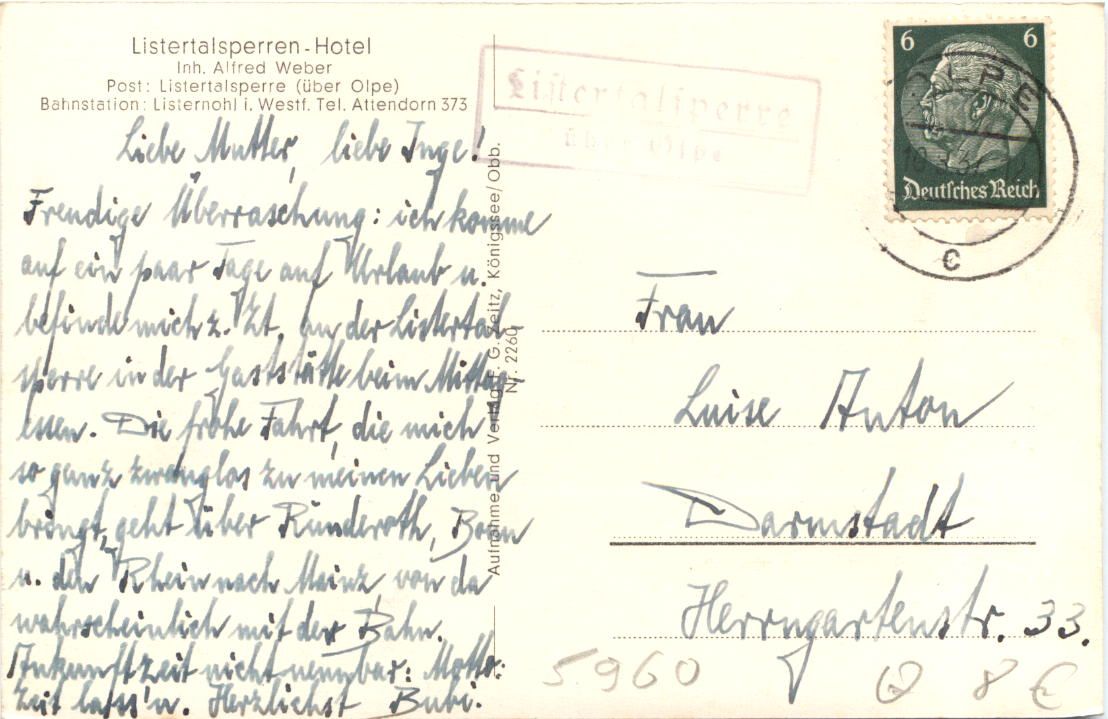 Listertalsperren-Hotel
Inh. Alfred Weber
Post: Listertalsperre (über Olpe)
Bahnstation: Listernohl i. Westf. Tel. Attendorn 373
Liebe Mutter, liebe Inge!
Freudige Überraschung: ich komme
auf ein paar Tage auf Urlaub u.
befinde mich z. Zt. an der Listertal-
sperre in der Gaststätte beim Mittag-
essen. Die frohe Fahrt, die mich
so ganz zwanglos zu meinen Lieben
bringt, geht über Ründeroth, Bonn
u. den Rhein nach Mainz, von da
wahrscheinlich mit der Bahn.
Ankunftzeit nicht nennbar: Motto:
Zeit lass'n. Herzlichst Bubi.
Aufnahme und Verlag F. G. Zeitz, Königssee/Obb.
Nr. 2260
Listertalsperre
über Olpe
6 6
Deutsches Reich
OLPE
c
Frau
Luise Anton
Darmstadt
Herrngartenstr. 33.
5960
8 €